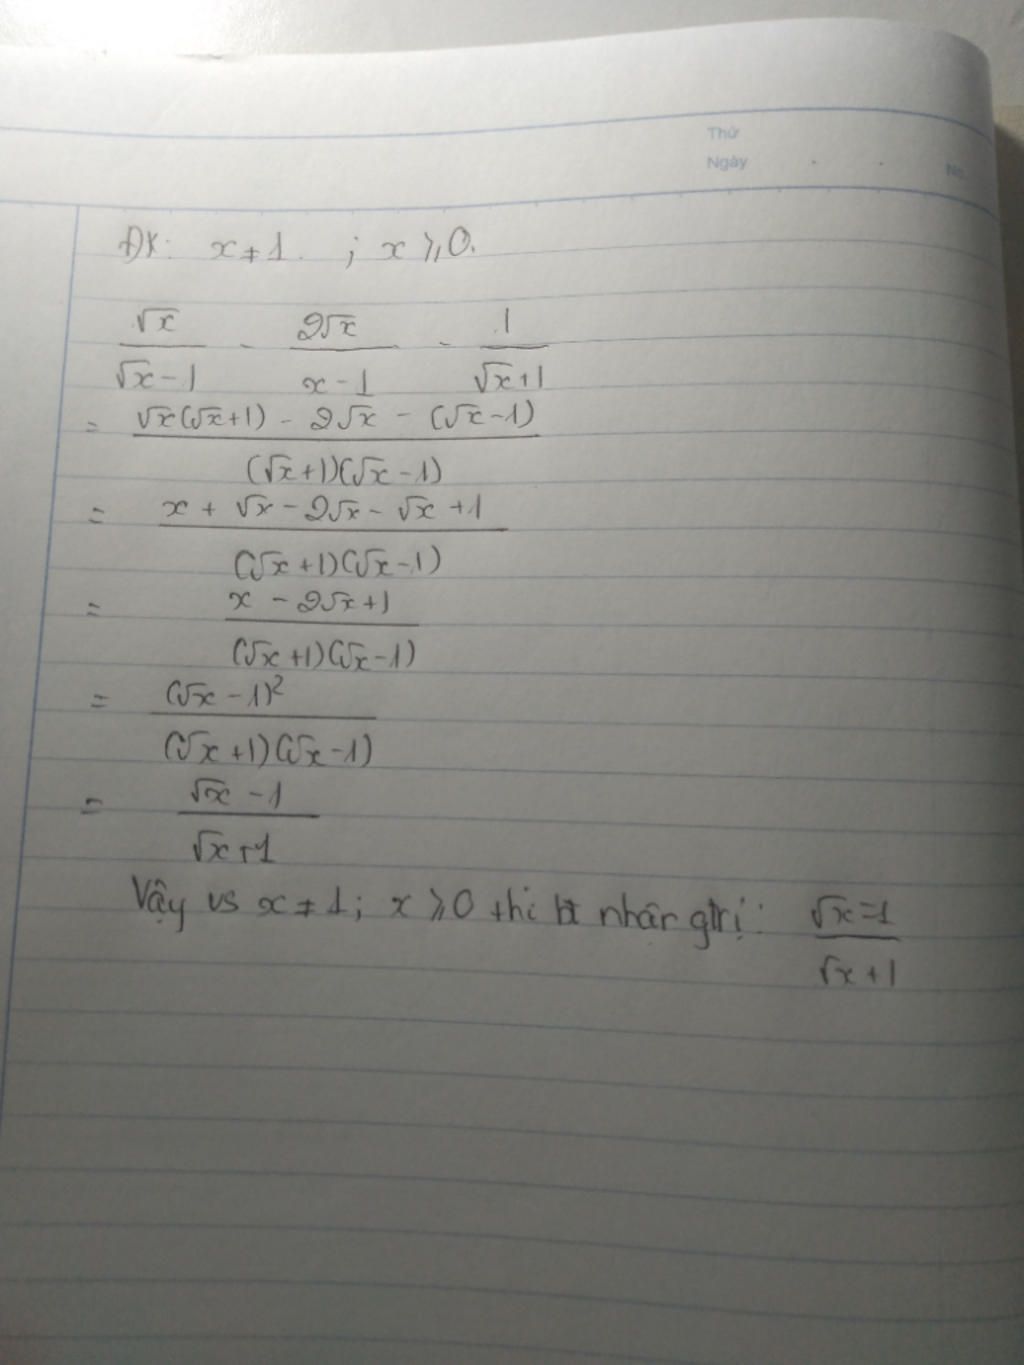 Thứ
Ngày . .
No.
ĐK: x ≠ 1 ; x ⩾ 0.
√x/(√x - 1) - 2√x/(x - 1) - 1/(√x + 1)
= (√x(√x+1) - 2√x - (√x-1))/((√x+1)(√x-1))
= (x + √x - 2√x - √x + 1)/((√x+1)(√x-1))
= (x - 2√x + 1)/((√x+1)(√x-1))
= (√x - 1)²/((√x+1)(√x-1))
= (√x - 1)/(√x + 1)
Vậy vs x ≠ 1; x ⩾ 0 thì bt nhận gtrị: (√x - 1)/(√x + 1)